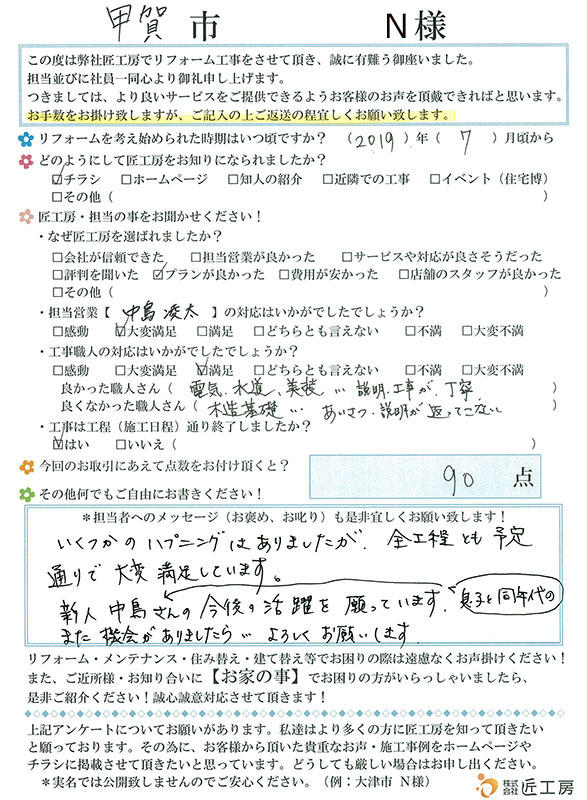 甲賀市 N様
この度は弊社匠工房でリフォーム工事をさせて頂き、誠に有難う御座いました。
担当並びに社員一同心より御礼申し上げます。
つきましては、より良いサービスをご提供できるようお客様のお声を頂戴できればと思います。
お手数をお掛け致しますが、ご記入の上ご返送の程宜しくお願い致します。
リフォームを考え始められた時期はいつ頃ですか? (2019)年(7)月頃から
どのようにして匠工房をお知りになられましたか?
☑チラシ □ホームページ □知人の紹介 □近隣での工事 □イベント(住宅博)
□その他( )
匠工房・担当の事をお聞かせください!
・なぜ匠工房を選ばれましたか?
□会社が信頼できた □担当営業が良かった □サービスや対応が良さそうだった
□評判を聞いた ☑プランが良かった □費用が安かった □店舗のスタッフが良かった
□その他( )
・担当営業【中島凌太】の対応はいかがでしたでしょうか?
□感動 ☑大変満足 □満足 □どちらとも言えない □不満 □大変不満
・工事職人の対応はいかがでしたでしょうか?
□感動 □大変満足 ☑満足 □どちらとも言えない □不満 □大変不満
良かった職人さん(電気、水道、美装…説明.工事が、丁寧.)
良くなかった職人さん(木造基礎…あいさつ.説明が返ってこない)
・工事は工程(施工日程)通り終了しましたか?
☑はい □いいえ( )
今回のお取引にあえて点数をお付け頂くと? 90点
その他何でもご自由にお書きください!
*担当者へのメッセージ(お褒め、お叱り)も是非宜しくお願い致します!
いくつかのハプニングはありましたが、全工程とも予定
通りで大変満足しています。
新人中島さんの今後の活躍を願っています. 息子と同年代の
また機会がありましたら…よろしくお願いします.
リフォーム・メンテナンス・住み替え・建て替え等でお困りの際は遠慮なくお声掛けください!
また、ご近所様・お知り合いに【お家の事】でお困りの方がいらっしゃいましたら、
是非ご紹介ください!誠心誠意対応させて頂きます!
上記アンケートについてお願いがあります。私達はより多くの方に匠工房を知って頂きたい
と願っております。その為に、お客様から頂いた貴重なお声・施工事例をホームページや
チラシに掲載させて頂きたいと思っています。どうしても厳しい場合はお申し出ください。
*実名では公開致しませんのでご安心ください。(例:大津市 N様)
株式会社 匠工房